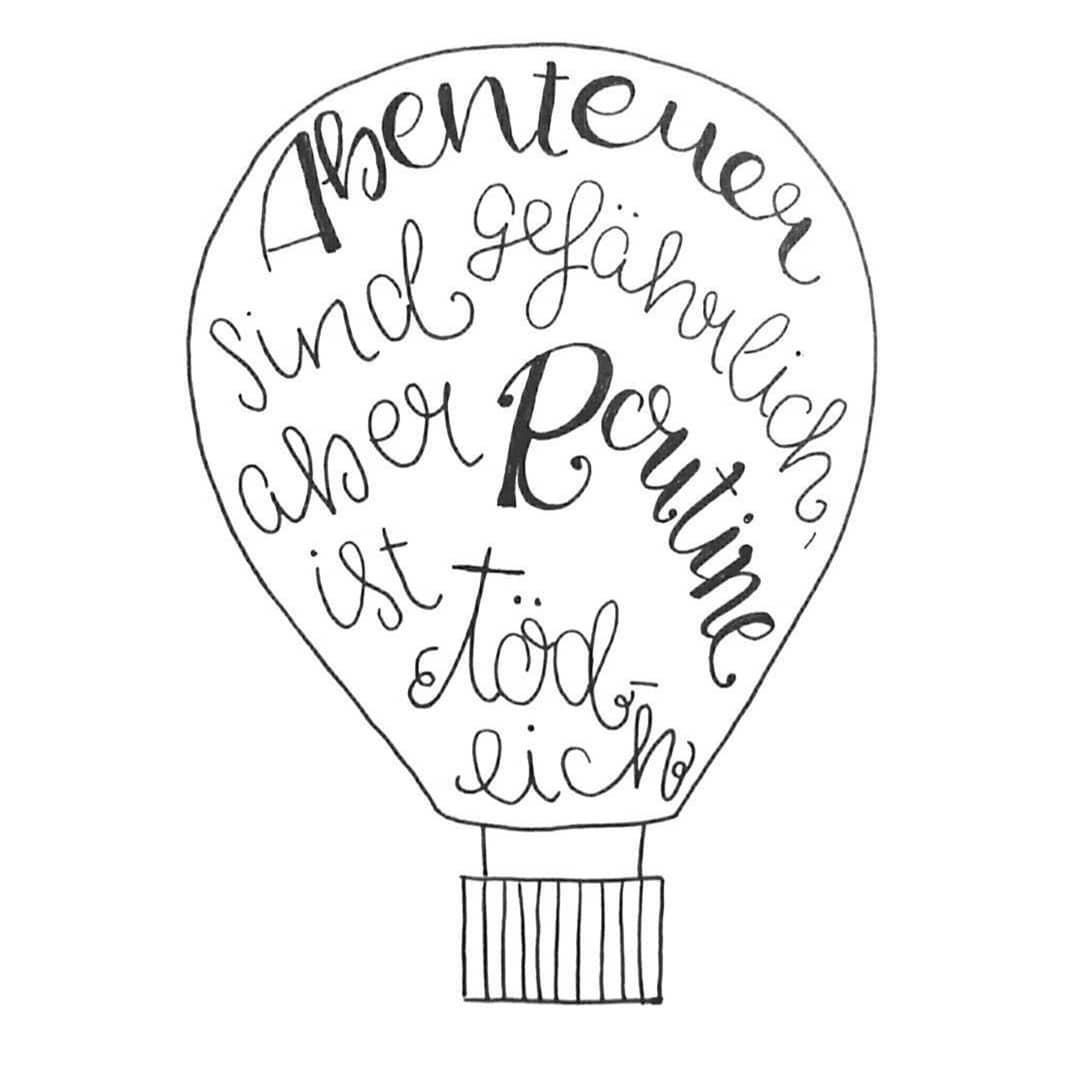 Abenteuer
sind gefährlich,
aber Routine
ist töd-
lich